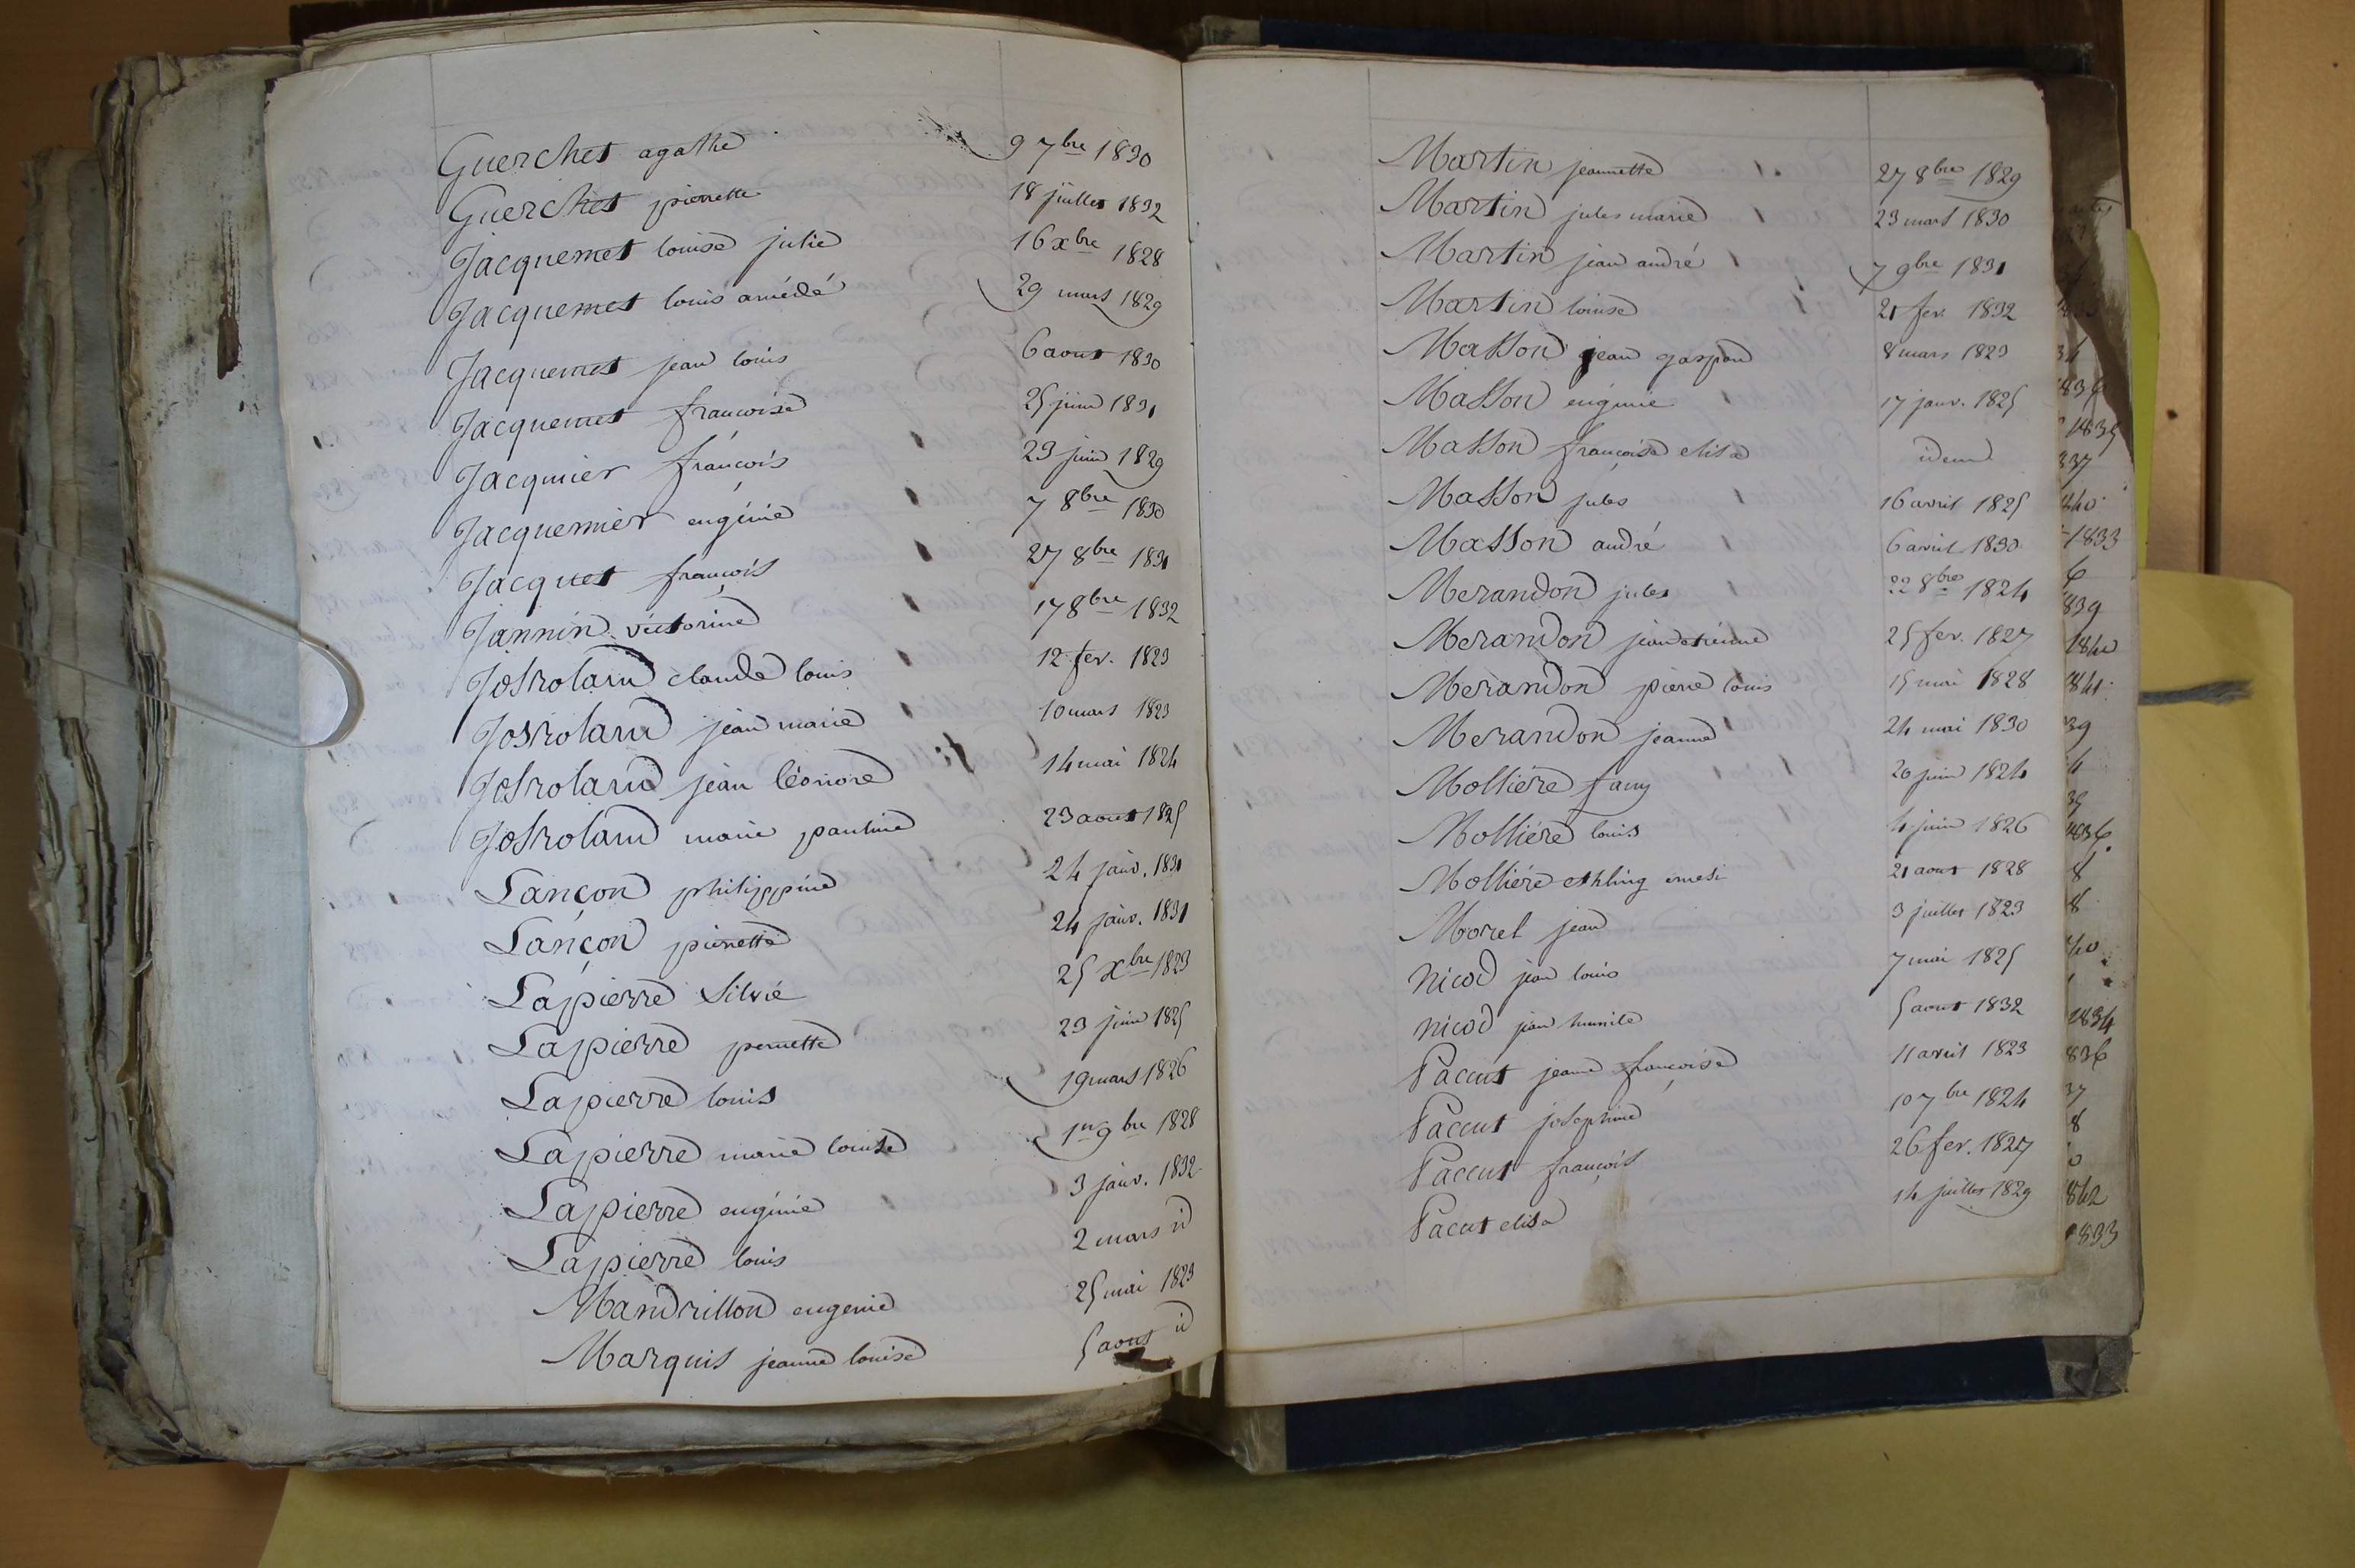 Guerchet agathe 9 7bre 1830
Guerchet pierrette 18 juillet 1832
Jacquemet louise julie 16 xbre 1828
Jacquemet louis amédé 29 mars 1829
Jacquemet jean louis 6 aout 1830
Jacquemet francoise 25 juin 1831
Jacquier françois 23 juin 1829
Jacquemier eugénie 7 8bre 1830
Jacquet françois 27 8bre 1831
Jannin victorine 17 8bre 1832
Josroland claude louis 12 fev. 1823
Josroland jean marie 10 mars 1823
Josroland jean léonore 14 mai 1824
Josroland marie pauline 23 aout 1825
Lançon philippine 24 janv. 1831
Lançon pierrette 24 janv. 1831
Lapierre Silvie 25 Xbre 1823
Lapierre pernette 23 juin 1825
Lapierre louis 19 mars 1826
Lapierre marie louise 1er 9bre 1828
Lapierre eugénie 3 janv. 1832
Lapierre louis 2 mars id
Mandrillon eugenie 25 mai 1823
Marquis jeanne louise 5 aout id
Martin jeannette 27 8bre 1829
Martin jules marie 23 mars 1830
Martin jean andré 7 9bre 1831
Martin louise 21 fev. 1832
Masson jean gaspard 8 mars 1823
Masson eugénie 17 janv. 1825
Masson françoise elisa idem
Masson jules 16 avril 1825
Masson andré 6 avril 1830
Merandon jules 22 8bre 1824
Merandon jean etienne 25 fev. 1827
Merandon pierre louis 15 mai 1828
Merandon jeanne 24 mai 1830
Molliére fany 20 juin 1824
Molliére louis 4 juin 1826
Molliére 21 aout 1828
Morel jean 3 juillet 1823
Nicod jean louis 7 mai 1825
Nicod jean 5 aout 1832
Paccut jeanne françoise 11 avril 1823
Paccut josephine 10 7bre 1824
Paccut françois 26 fev. 1827
Pacut elisa 14 juillet 1829